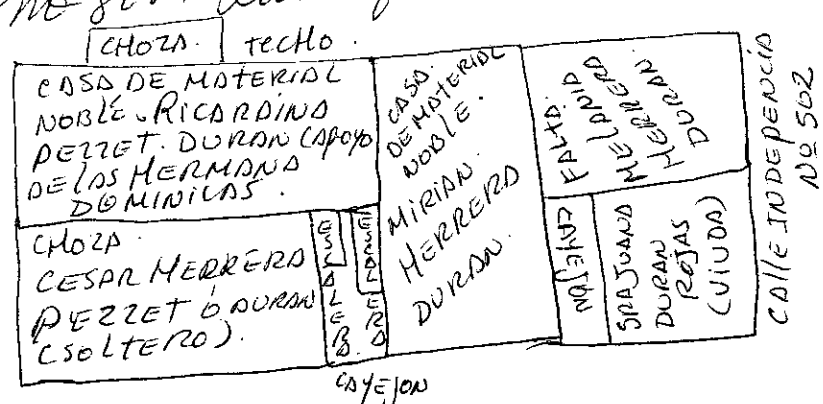 CHOZA. TECHO.
CASA DE MATERIAL
NOBLE. RICARDINA
PEZZET. DURAN (APOYO
DE LAS HERMANA
DOMINICAS.
CHOZA.
CESAR HERRERA
PEZZET Ó DURAN
(SOLTERO).
ESCALERA
CASA.
DE MATERIAL
NOBLE.
MIRIAN.
HERRERA
DURAN.
FALTA.
MELANIA
HERRERA
DURAN.
CAYEJON
SRA JUANA
DURAN
ROJAS
(VIUDA)
CALLE INDEPENCIA
Nº 502
CAYEJON